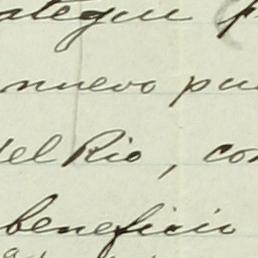 ategui
nuevo pu
del Rio, con
beneficio